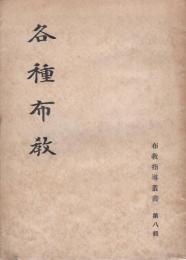 各種布教
布教指導叢書 第八輯